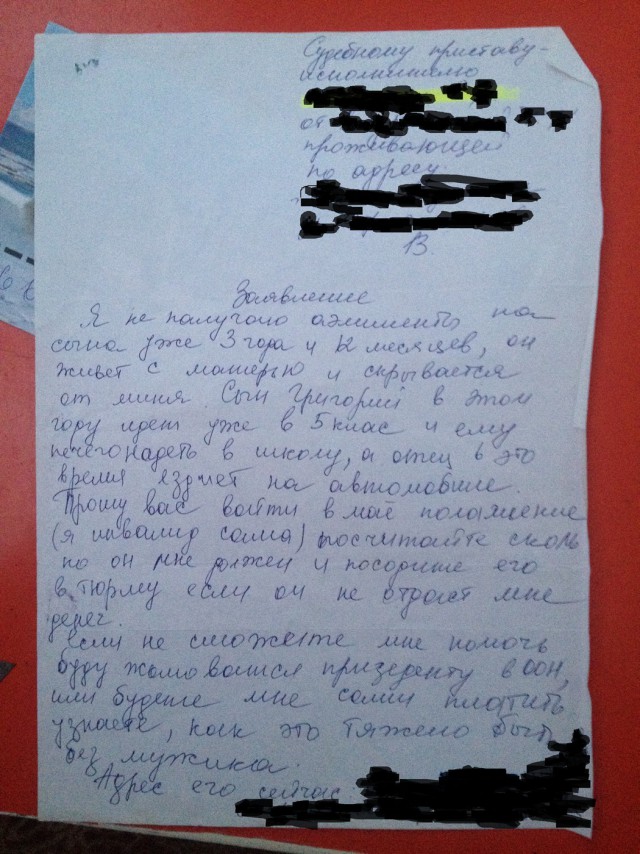 Судебному приставу-
исполнителю
от
проживающей
по адресу:
В.
Заявление
Я не палучаю алименты на
сына уже 3 гора и 12 месяцев, он
живет с матерью и скрывается
от миня. Сын Григорий в этом
гору идет уже в 5 клас и ему
нечего надеть в школу, а отец в это
время ездиет на автомобиле.
Прошу вас войти в маё палажение
(я инвалид сама) посчитайте сколь
но он мне должен и посодише его
в тюрму если он не отдаст мне
денег.
Если не сможете мне помочь
буду жаловатся призеденту в ООН,
или будеше мне сами платить
узнаете, как это тяжело быть
без мужика.
Адрес его сейчас: